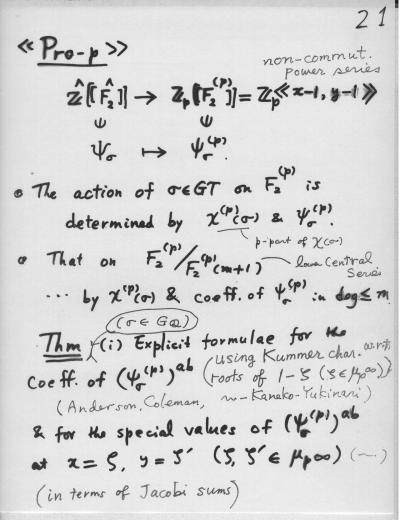 21
<< Pro-p >>
non-commut.
power series
Ẑ[[F̂₂]] → ℤₚ[[F₂⁽ᵖ⁾]] = ℤₚ<<x-1, y-1>>
ψ_σ ↦ ψ_σ⁽ᵖ⁾.
• The action of σ∈GT on F₂⁽ᵖ⁾ is
determined by χ⁽ᵖ⁾(σ) & ψ_σ⁽ᵖ⁾.
p-part of χ(σ)
• That on F₂⁽ᵖ⁾/F₂⁽ᵖ⁾(m+1) lower central
series
... by χ⁽ᵖ⁾(σ) & coeff. of ψ_σ⁽ᵖ⁾ in deg ≤ m
(σ ∈ G_ℚ)
Thm (i) Explicit formulae for the
coeff. of (ψ_σ⁽ᵖ⁾)ᵃᵇ (using Kummer char. w.r.t.
roots of 1-ζ (ζ∈μ_p∞))
(Anderson, Coleman, ~ Kaneko-Yukinari)
& for the special values of (ψ_σ⁽ᵖ⁾)ᵃᵇ
at x = ζ, y = ζ' (ζ, ζ' ∈ μ_p∞) (~)
(in terms of Jacobi sums)